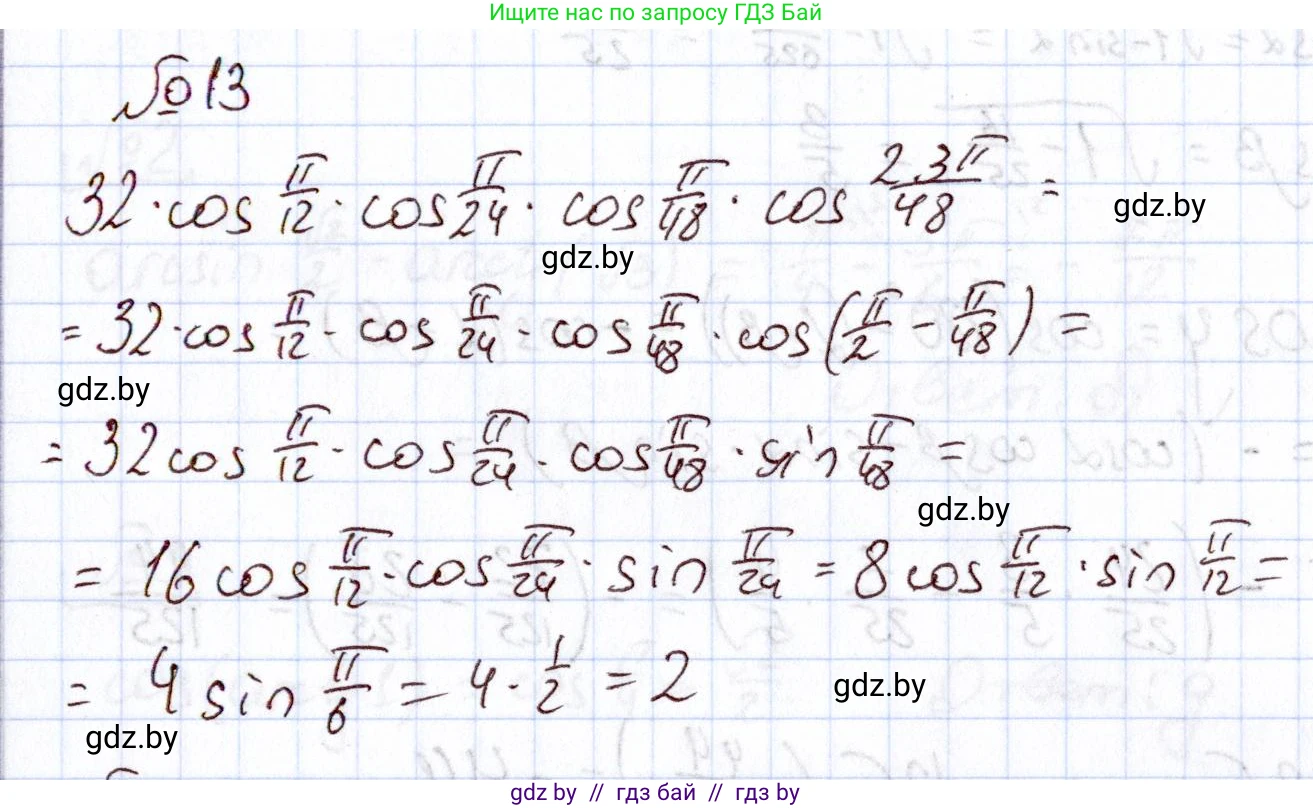 Ищите нас по запросу ГДЗ Бай
№13
32·cos π/12 · cos π/24 · cos π/48 · cos 23π/48 =
gdz.by
gdz.by
= 32·cos π/12 · cos π/24 · cos π/48 · cos(π/2 − π/48) =
gdz.by
= 32 cos π/12 · cos π/24 · cos π/48 · sin π/48 =
gdz.by
= 16 cos π/12 · cos π/24 · sin π/24 = 8 cos π/12 · sin π/12 =
= 4 sin π/6 = 4 · 1/2 = 2
gdz.by
gdz.by
gdz.by // гдз бай // гдз by